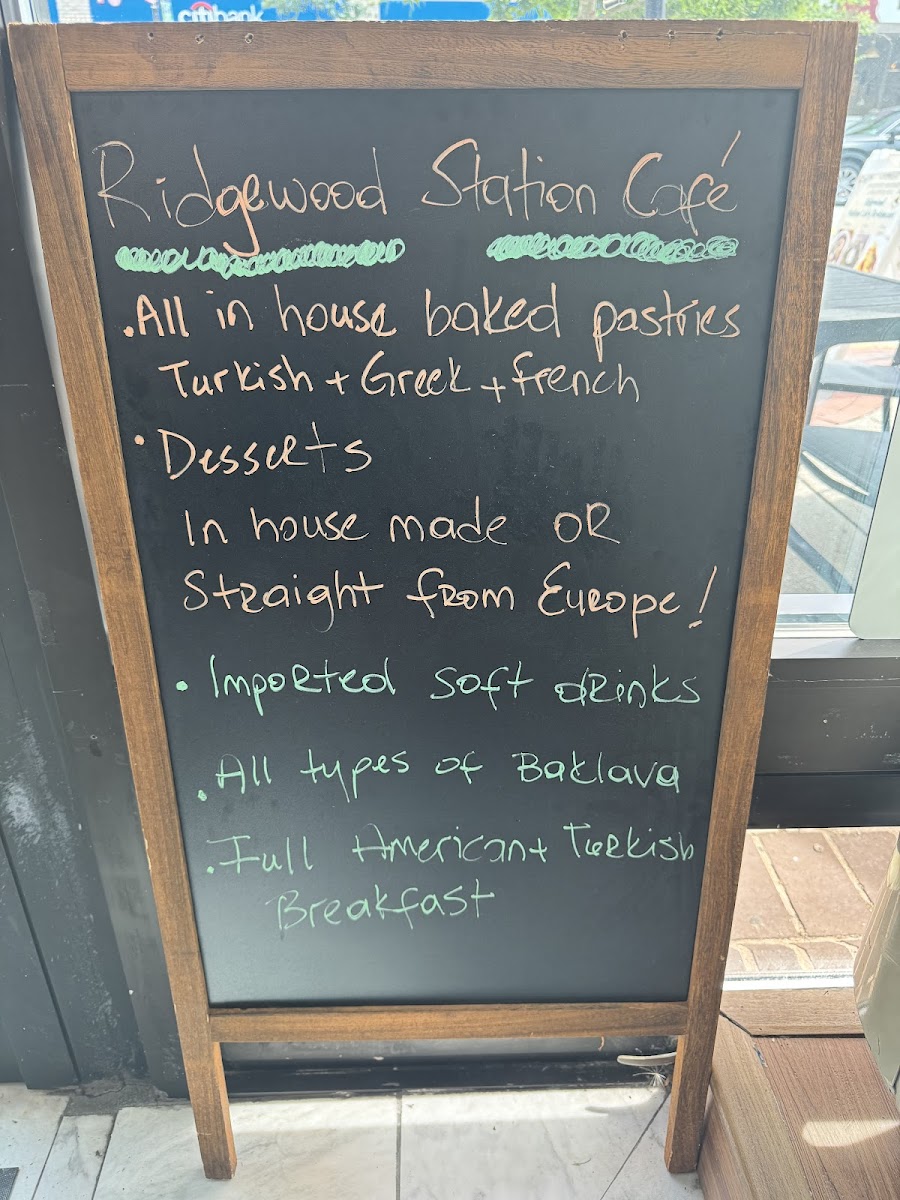 citibank
Ridgewood Station Café
.All in house baked pastries
Turkish + Greek + French
• Desserts
In house made OR
Straight from Europe!
• Imported soft drinks
. All types of Baklava
. Full American + Turkish
Breakfast